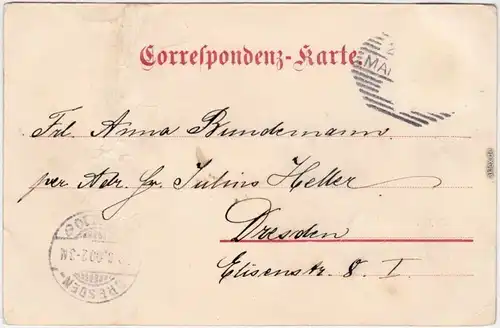 Correspondenz-Karte
MAI
Frl. Anna Bundemann
per Adr. Hr. Julius Heller
Dresden
Elisenstr. 8. I.
2-3N